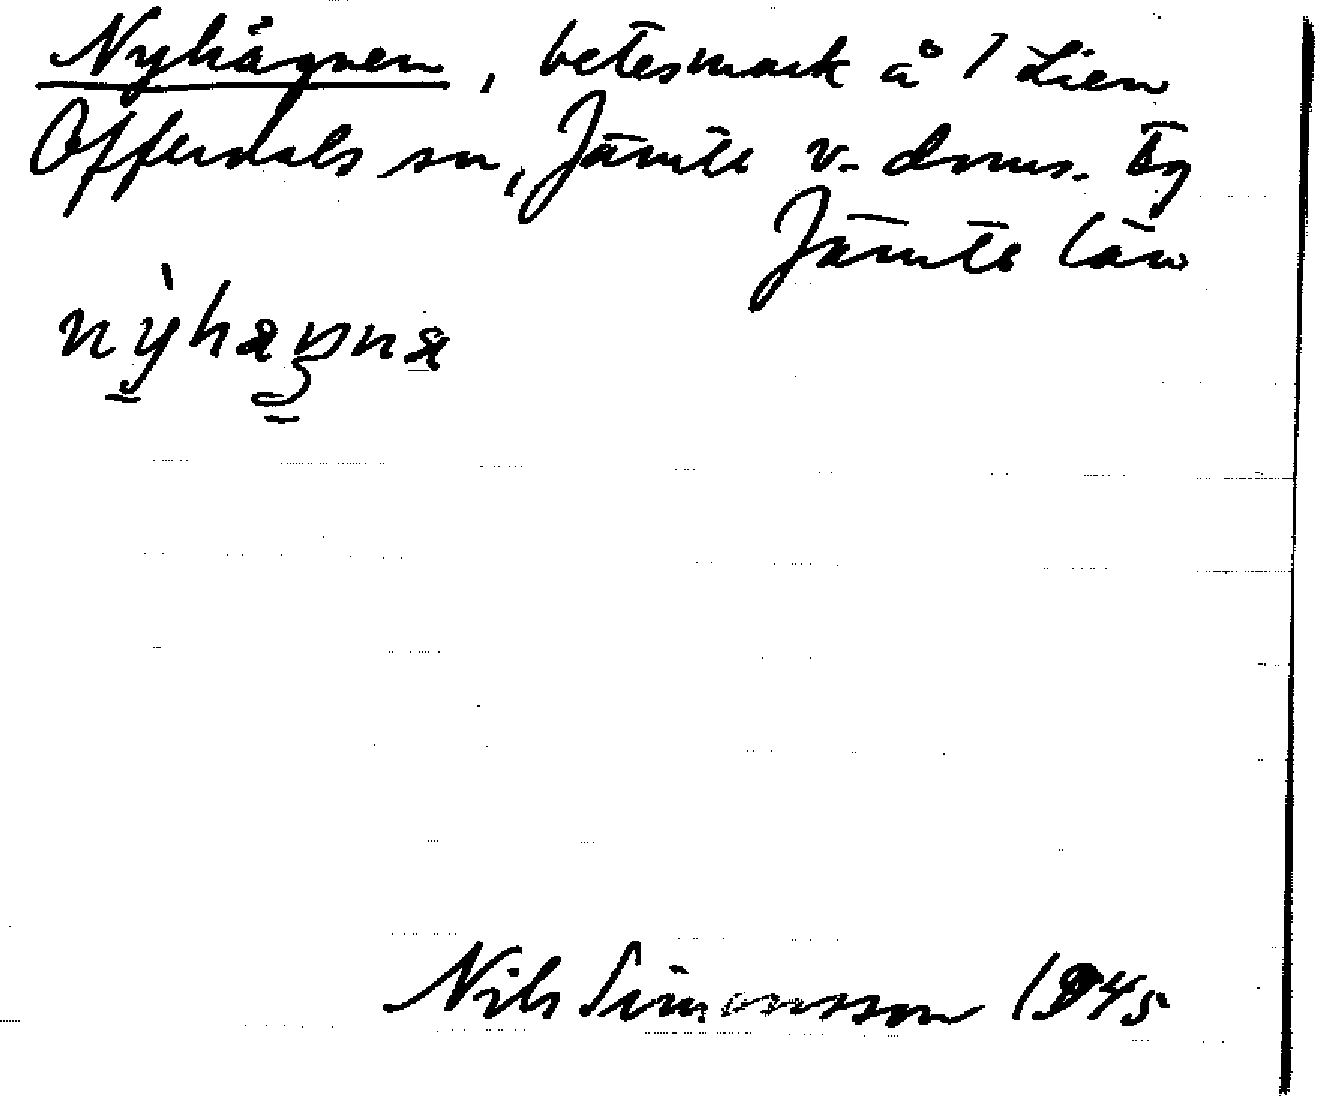 Nyhägnen, betesmark å 1 Lien
Offerdals sn, Jämtl v. doms. tg
Jämtl län
nỳhägnä
Nils Simonsson 1945